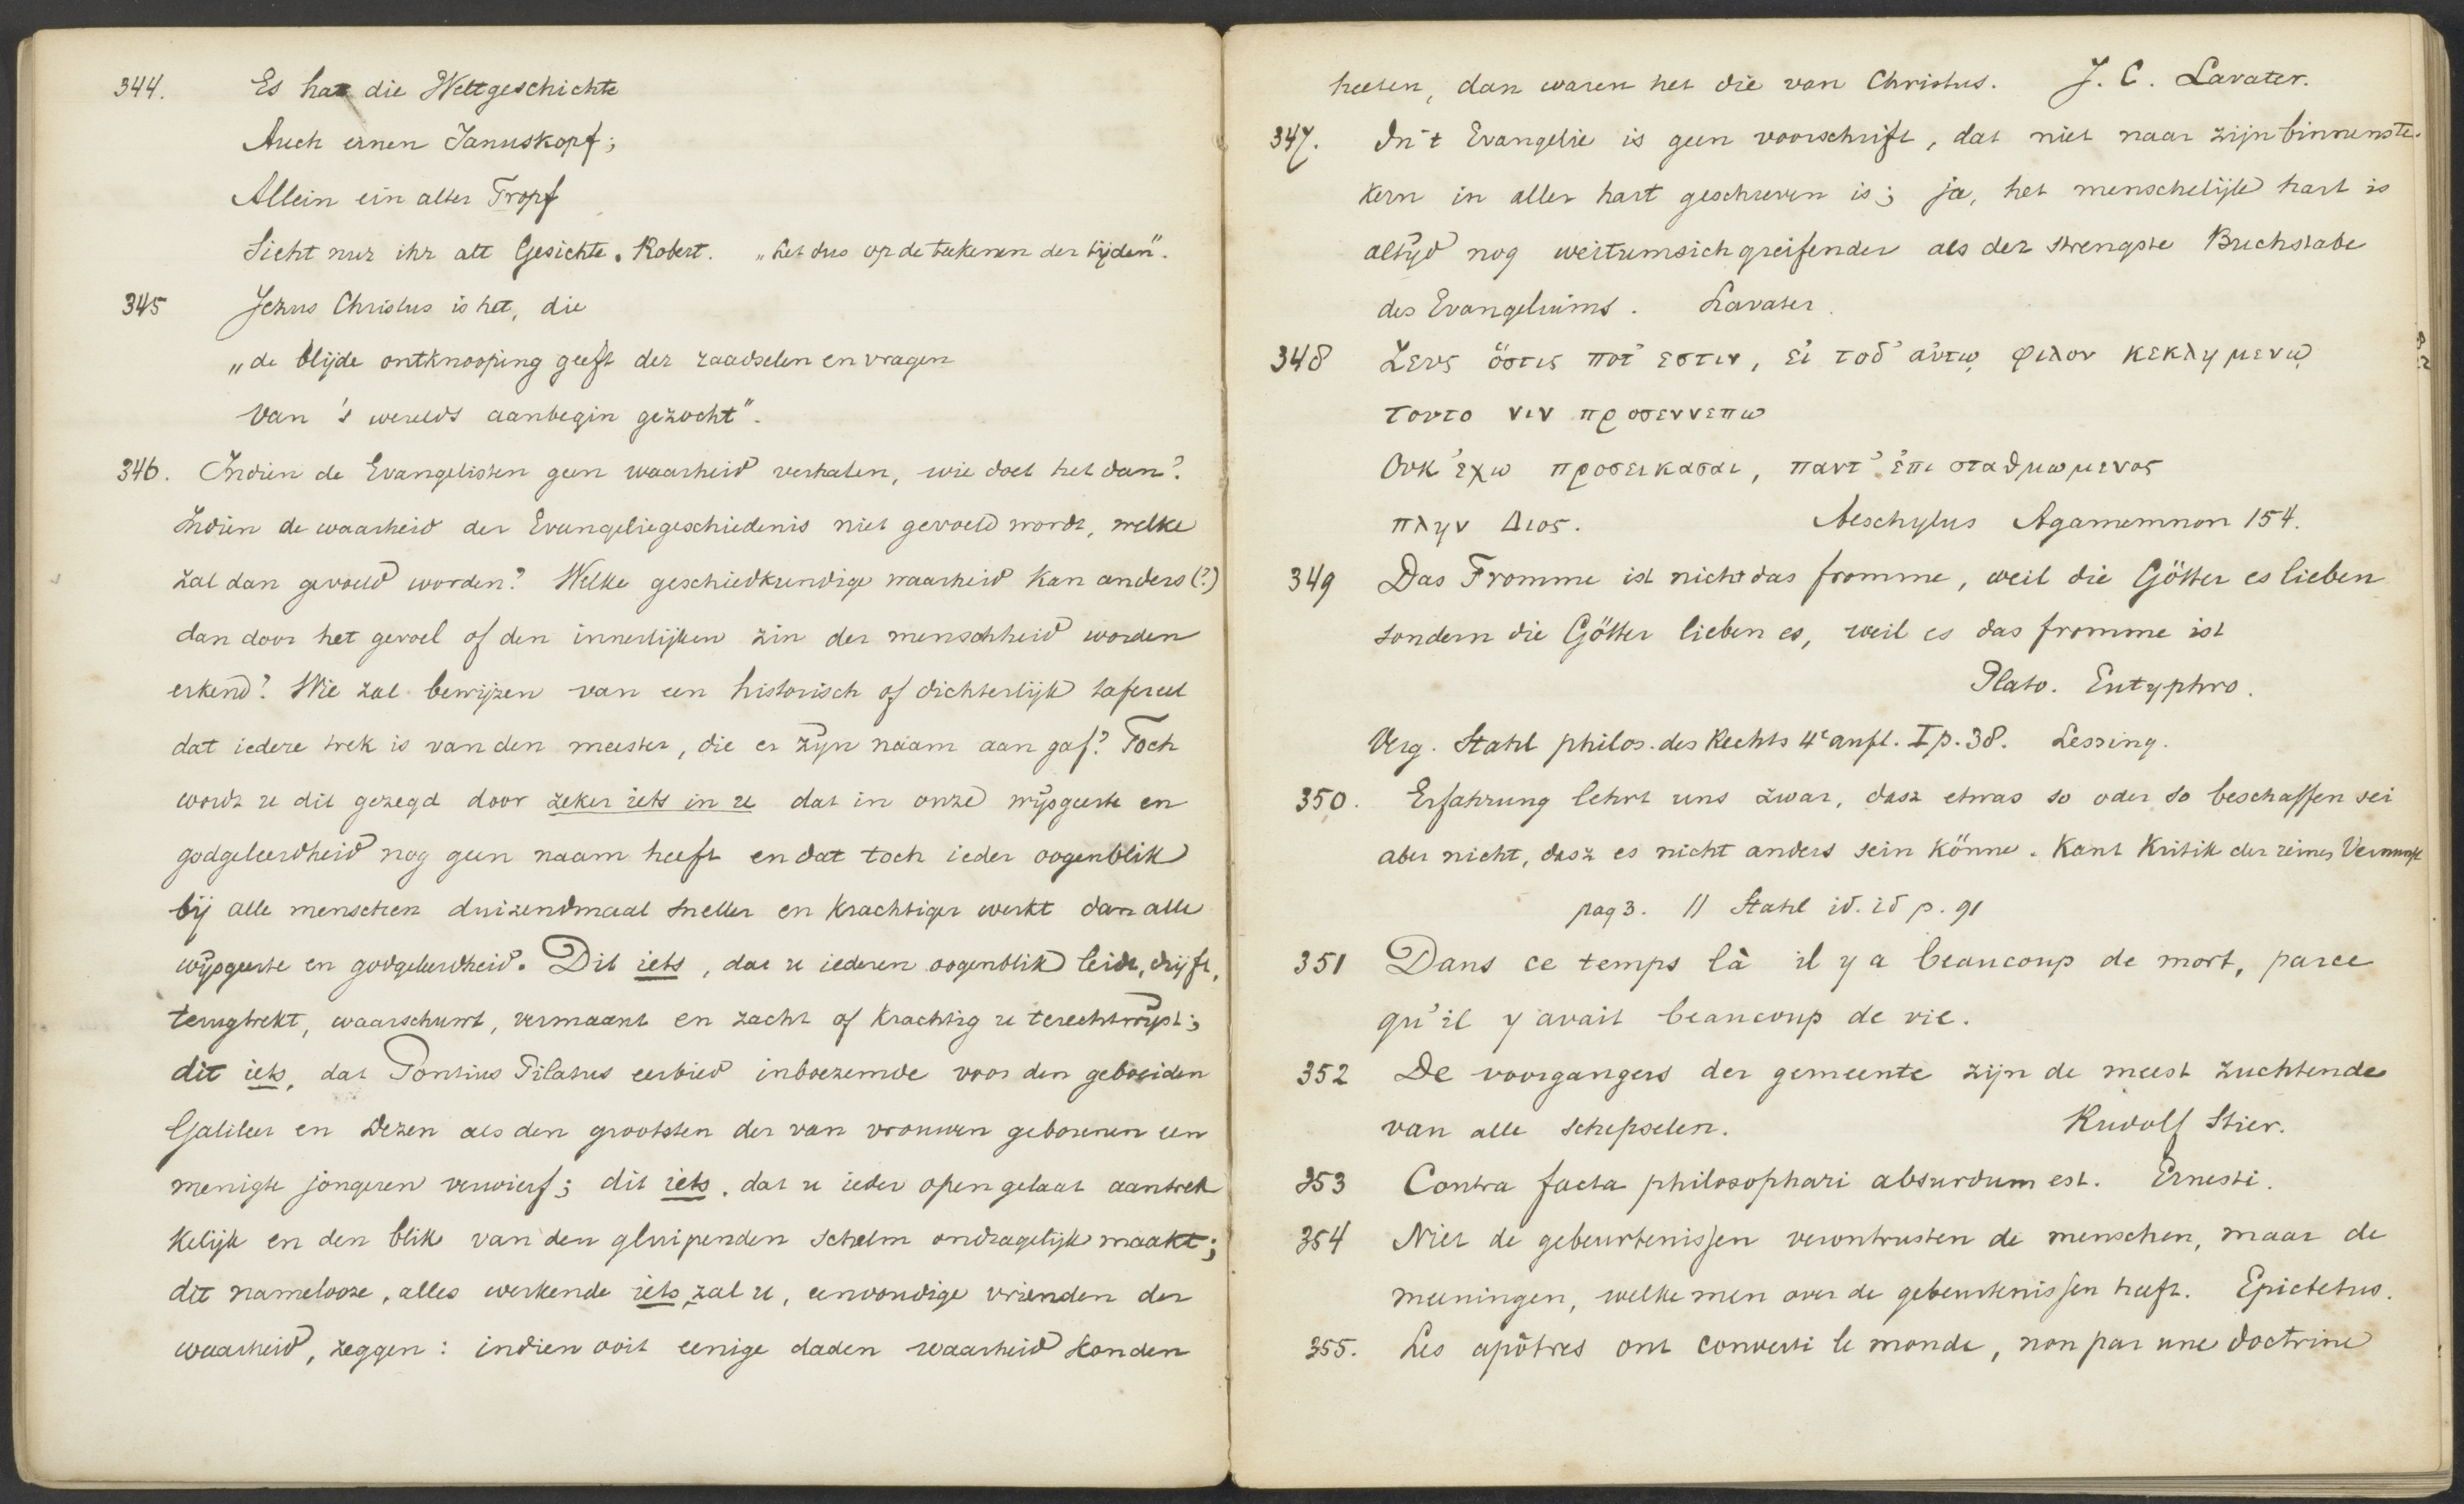 344. Es hat die Weltgeschichte
Auch einen Januskopf;
Allein ein alter Tropf
Sieht nur ihr alt Gesichte. Robert. „Let dus op de teekenen der tijden".
345 Jezus Christus is het, die
„de blijde ontknooping geeft der raadselen en vragen
Van 's werelds aanbegin gezocht".
346. Indien de Evangelisten geen waarheid verhalen, wie doet het dan?
Indien de waarheid der Evangeliegeschiedenis niet gevoeld wordt, welke
zal dan gevoeld worden? Welke geschiedkundige waarheid kan anders (?)
dan door het gevoel of den innerlijken zin der menschheid worden
erkend? Wie zal bewijzen van een historisch of dichterlijk tafereel
dat iedere trek is van den meester, die er zijn naam aan gaf? Toch
wordt u dit gezegd door zeker iets in u dat in onze wijsgeerte en
godgeleerdheid nog geen naam heeft en dat toch ieder oogenblik
bij alle menschen duizendmaal sneller en krachtiger werkt dan alle
wijsgeerte en godgeleerdheid. Dit iets, dat u iederen oogenblik leidt, drijft,
terugtrekt, waarschuwt, vermaant en zacht of krachtig u terechtwijst;
dit iets, dat Pontius Pilatus eerbied inboezemde voor den geboeiden
Galileer en Dezen als den grootsten der van vrouwen geborenen een
menigte jongeren verwierf; dit iets, dat u ieder open gelaat aantrek
kelijk en den blik van den gluipenden schelm ondragelijk maakt;
dit namelooze, alles werkende iets, zal u, eenvoudige vrienden der
waarheid, zeggen: indien ooit eenige daden waarheid konden
heeten, dan waren het die van Christus. J. C. Lavater.
347. In 't Evangelie is geen voorschrift, dat niet naar zijn binnenste
kern in aller hart geschreven is; ja, het menschelijk hart is
altijd nog weitumsichgreifender als der strengste Buchstabe
des Evangeliums. Lavater.
348 Ζευς ὅστις ποτ' εστιν, εἰ τοδ' αὐτῳ φιλον κεκλημενῳ
τουτο νιν προσεννεπω
Ουκ ἐχω προσεικασαι, παντ' ἐπισταθμωμενος
πλην Διος. Aeschylus Agamemnon 154.
349 Das Fromme ist nicht das fromme, weil die Götter es lieben
sondern die Götter lieben es, weil es das fromme ist
Plato. Eutyphro.
Verg. Stahl philos. des Rechts 4e aufl. I p. 38. Lessing.
350. Erfahrung lehrt uns zwar, dasz etwas so oder so beschaffen sei
aber nicht, dasz es nicht anders sein könne. Kant Kritik der reinen Vernunft
pag 3. // Stahl id. id p. 91
351 Dans ce temps là il y a beaucoup de mort, parce
qu'il y avait beaucoup de vie.
352 De voorgangers der gemeente zijn de meest zuchtende
van alle schepselen. Rudolf Stier.
353 Contra facta philosophari absurdum est. Ernesti.
354 Niet de gebeurtenissen verontrusten de menschen, maar de
meeningen, welke men over de gebeurtenissen heeft. Epictetus.
355. Les apôtres ont converti le monde, non par une doctrine